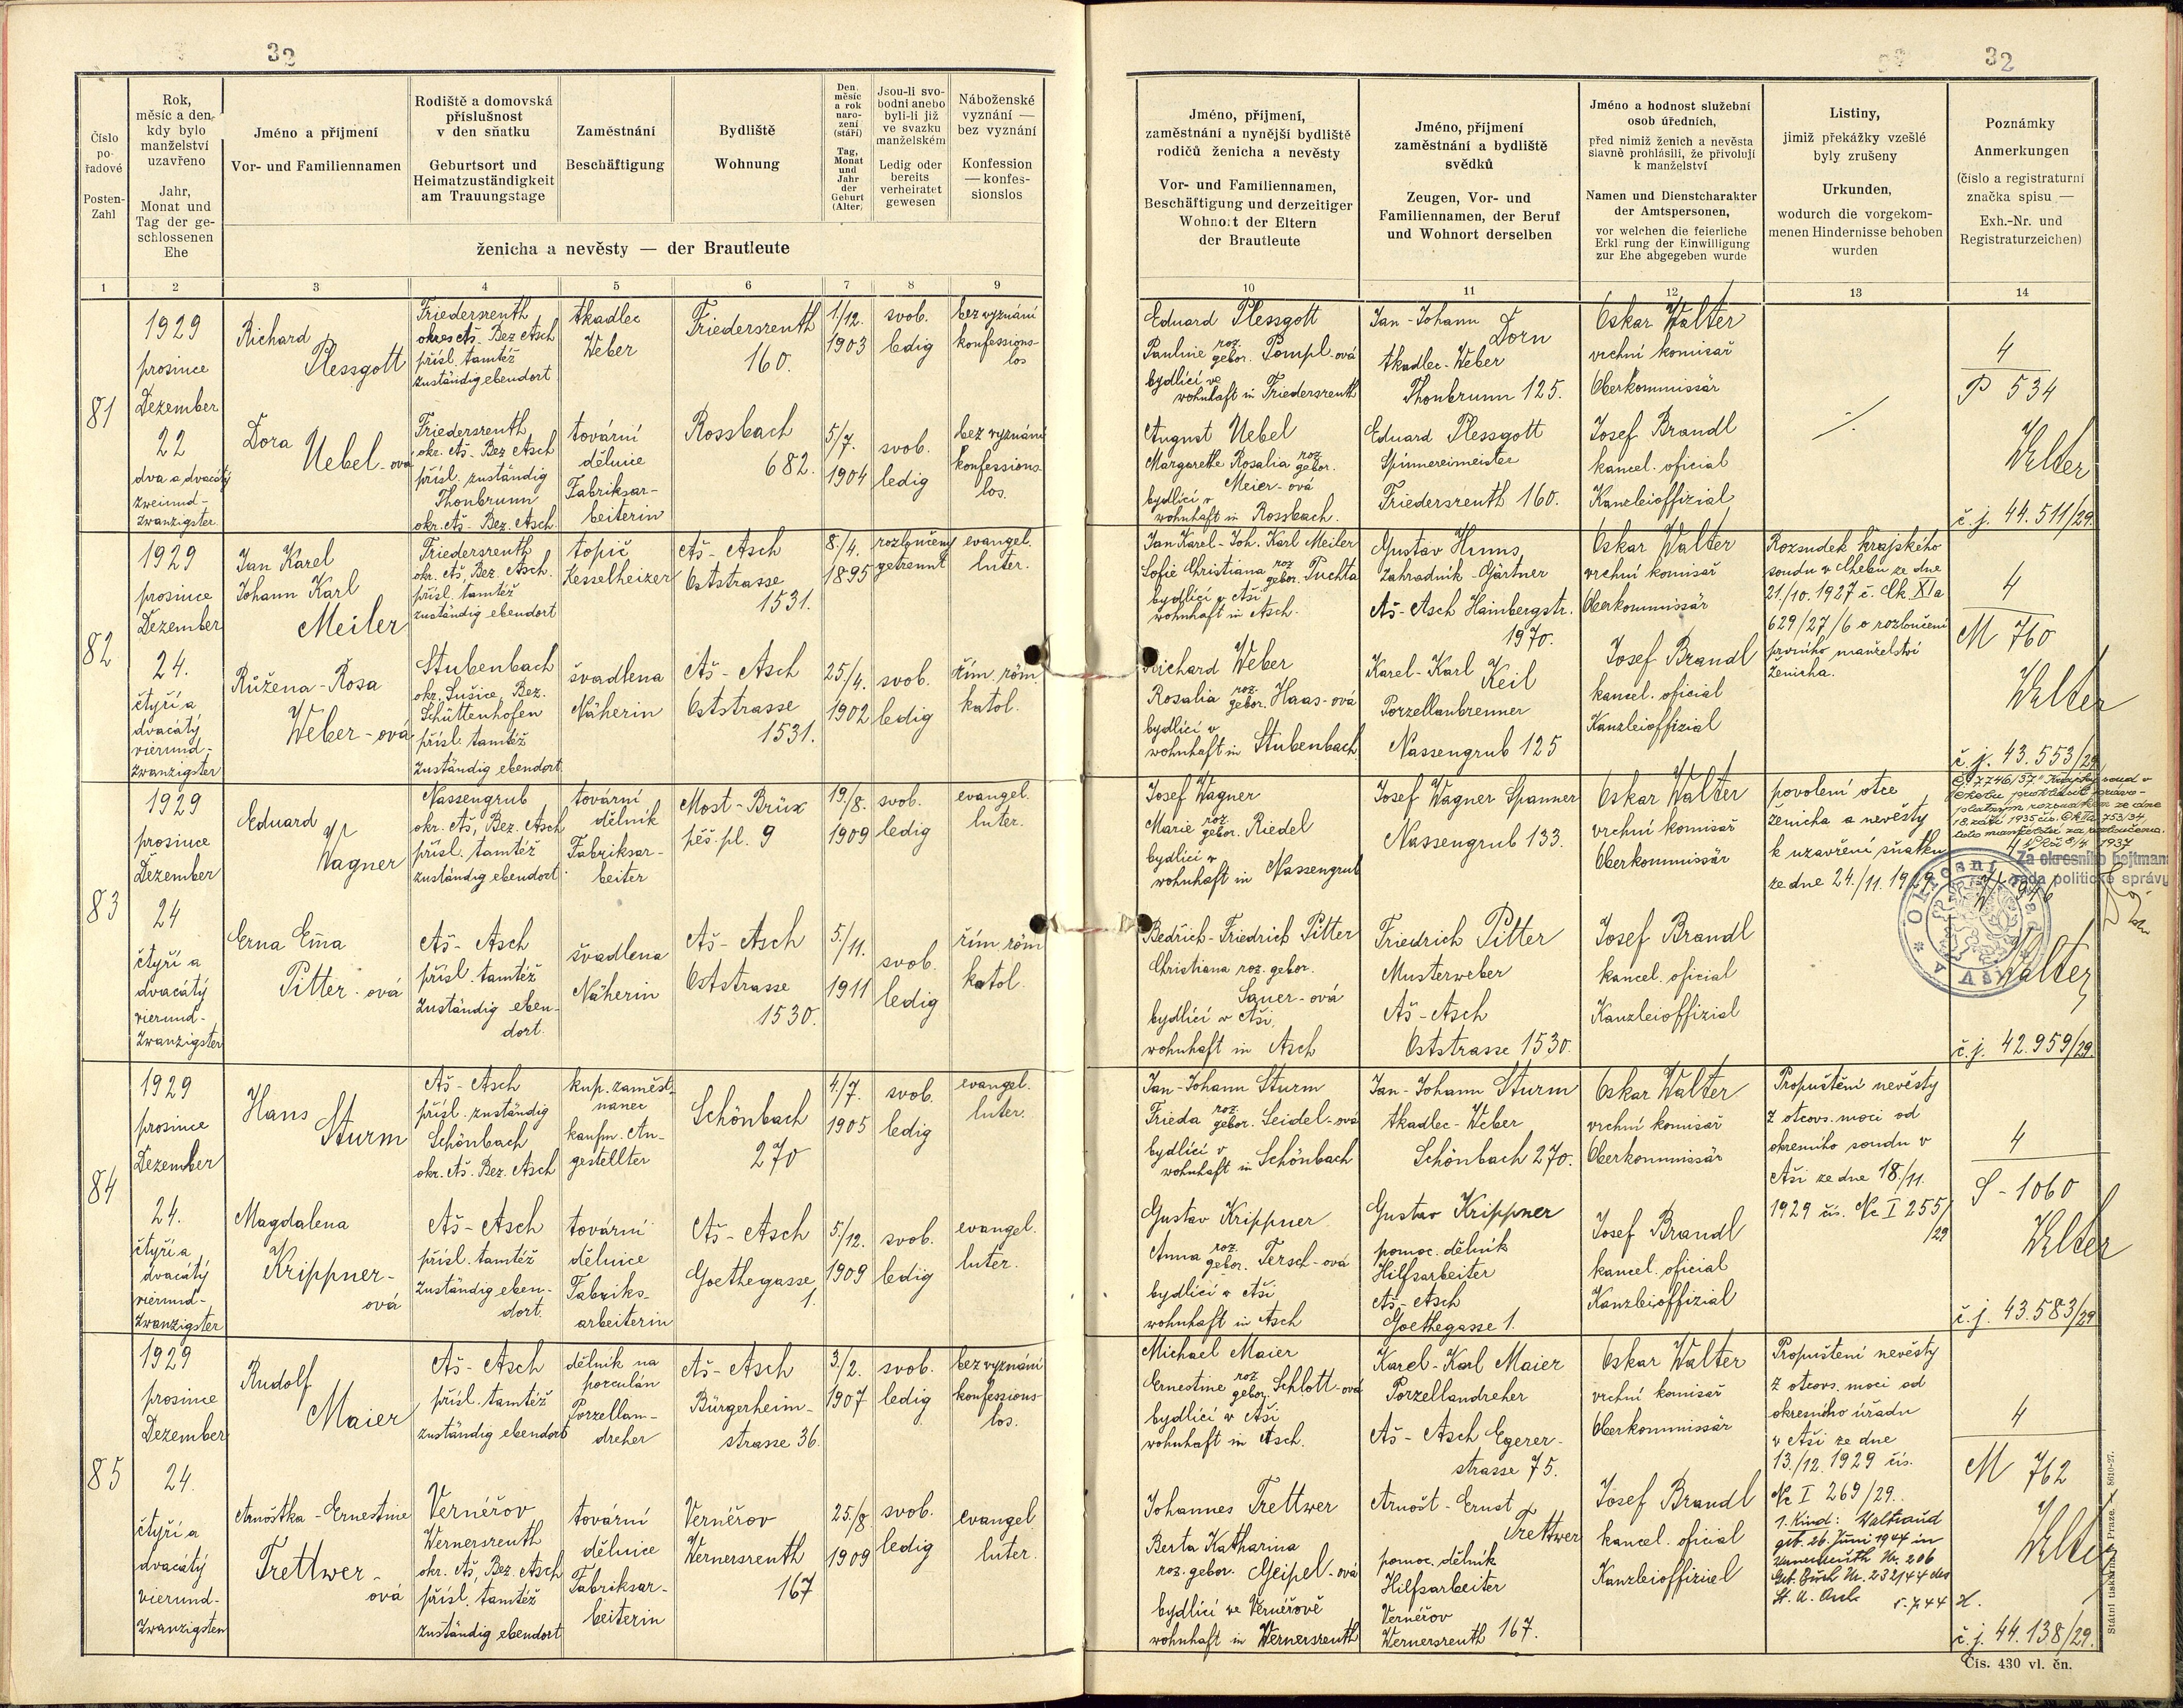 32
32
Číslo
po-
řadové
Posten-
Zahl
Rok,
měsíc a den,
kdy bylo
manželství
uzavřeno
Jahr,
Monat und
Tag der ge-
schlossenen
Ehe
Jméno a příjmení
Vor- und Familiennamen
Rodiště a domovská
příslušnost
v den sňatku
Geburtsort und
Heimatzuständigkeit
am Trauungstage
Zaměstnání
Beschäftigung
Bydliště
Wohnung
Den,
měsíc
a rok
naro-
zení
(stáří)
Tag,
Monat
und
Jahr
der
Geburt
(Alter)
Jsou-li svo-
bodni anebo
byli-li již
ve svazku
manželském
Ledig oder
bereits
verheiratet
gewesen
Náboženské
vyznání —
bez vyznání
Konfession
— konfes-
sionslos
ženicha a nevěsty — der Brautleute
Jméno, příjmení,
zaměstnání a nynější bydliště
rodičů ženicha a nevěsty
Vor- und Familiennamen,
Beschäftigung und derzeitiger
Wohnort der Eltern
der Brautleute
Jméno, příjmení
zaměstnání a bydliště
svědků
Zeugen, Vor- und
Familiennamen, der Beruf
und Wohnort derselben
Jméno a hodnost služební
osob úředních,
před nimiž ženich a nevěsta
slavně prohlásili, že přivolují
k manželství
Namen und Dienstcharakter
der Amtspersonen,
vor welchen die feierliche
Erkl rung der Einwilligung
zur Ehe abgegeben wurde
Listiny,
jimiž překážky vzešlé
byly zrušeny
Urkunden,
wodurch die vorgekom-
menen Hindernisse behoben
wurden
Poznámky
Anmerkungen
(číslo a registraturní
značka spisu —
Exh.-Nr. und
Registraturzeichen)
1 2 3 4 5 6 7 8 9 10 11 12 13 14
81
1929
prosince
Dezember
22
dva a dvacátý
zweiund-
zwanzigster
Richard
Plessgott
Friedersreuth
okres Aš. Bez Asch
přísl. tamtéž
zuständig ebendort
tkadlec
Weber
Friedersreuth
160.
1/12.
1903
svob.
ledig
bez vyznání
konfessions-
los
Dora
Uebel-ová
Friedersreuth
okr. Aš. Bez Asch
přísl. zuständig
Thonbrunn
okr. Aš. Bez. Asch
tovární
dělnice
Fabriksar-
beiterin
Rossbach
682.
5/7.
1904
svob.
ledig
bez vyznání
konfessions
los.
Eduard Plessgott
Pauline roz. gebor. Pompl-ová
bydlící ve
wohnhaft in Friedersreuth
August Uebel
Margarethe Rosalia roz. gebor.
Meier-ová
bydlící v
wohnhaft in Rossbach.
Jan-Johann
Dorn
tkadlec-Weber
Thonbrunn 125.
Eduard Plessgott
Spinnereimeister
Friedersreuth 160.
Oskar Walter
vrchní komisař
Oberkommissär
Josef Brandl
kancel. oficial
Kanzleioffizial
./.
4
P 534
Walter
č.j. 44.511/29.
82
1929
prosince
Dezember
24.
čtyři a
dvacátý
vierund-
zwanzigster
Jan Karel
Johann Karl
Meiler
Friedersreuth
okr. Aš, Bez. Asch.
přísl. tamtéž
zuständig ebendort
topič
Kesselheizer
Aš-Asch
Oststrasse
1531.
8./4.
1895
rozloučený
getrennt
evangel.
luter.
Růžena-Rosa
Weber-ová
Stubenbach
okr. Sušice, Bez.
Schüttenhofen
přísl. tamtéž
zuständig ebendort
švadlena
Näherin
Aš-Asch
Oststrasse
1531.
25/4.
1902
svob.
ledig
řím. röm
katol.
Jan Karel-Joh. Karl Meiler
Sofie Christiana roz gebor. Puchta
bydlící v Aši
wohnhaft in Asch.
Richard Weber
Rosalia roz. gebor. Haas-ová
bydlící v
wohnhaft in Stubenbach
Gustav
zahradník-Gärtner
Aš-Asch Hainbergstr.
1970.
Karel-Karl Keil
Porzellanbrenner
Nassengrub 125
Oskar Walter
vrchní komisař
Oberkommissär
Josef Brandl
kancel. oficial
Kanzleioffizial
Rozsudek krajského
soudu v Chebu ze dne
21./10. 1927 č. Ck XIa
629/27/6 o rozloučení
prvního manželství
ženicha.
4
M 760
Walter
č.j. 43.553/29
83
1929
prosince
Dezember
24
čtyři a
dvacátý
vierund-
zwanzigster
Eduard
Wagner
Nassengrub
okr. Aš, Bez. Asch
přísl. tamtéž
zuständig ebendort
tovární
dělník
Fabriksar-
beiter
Most-Brüx
pěš. pl. 9
19/8.
1909
svob.
ledig
evangel.
luter.
Erna Ema
Pitter-ová
Aš-Asch
přísl. tamtéž
zuständig eben-
dort.
švadlena
Näherin
Aš-Asch
Oststrasse
1530.
5./11.
1911
svob.
ledig
řím. röm
katol.
Josef Wagner
Marie roz. gebor. Riedel
bydlící v
wohnhaft in Nassengrub
Bedřich-Friedrich Pitter
Christiana roz. gebor.
Sauer-ová
bydlící v Aši,
wohnhaft in Asch
Josef Wagner Spanner
Nassengrub 133.
Friedrich Pitter
Musterweber
Aš-Asch
Oststrasse 1530.
Oskar Walter
vrchní komisař
Oberkommissär
Josef Brandl
kancel. oficial
Kanzleioffizial
povolení otce
ženicha a nevěsty
k uzavření sňatku
ze dne 24./11. 1929.
Krajský soud v
Chebu prohlásil právo-
platným rozsudkem ze dne
18. září 1935 čís. Ck IIa 753/34,
toto manželství za rozloučeno.
1937
Za okresního hejtmana
rada politické správy
Okresní
Walter
č.j. 42.959/29.
84
1929
prosince
Dezember
24.
čtyři a
dvacátý
vierund-
zwanzigster
Hans
Sturm
Aš-Asch
přísl. zuständig
Schönbach
okr. Aš. Bez. Asch
kup. zaměst-
nanec
kaufm. An-
gestellter
Schönbach
270
4./7.
1905
svob.
ledig
evangel.
luter.
Magdalena
Krippner-
ová
Aš-Asch
přísl. tamtéž
zuständig eben-
dort.
tovární
dělnice
Fabriks-
arbeiterin
Aš-Asch
Goethegasse
1.
5./12.
1909
svob.
ledig
evangel.
luter.
Jan-Johann Sturm
Frieda roz. gebor. Seidel-ová
bydlící v
wohnhaft in Schönbach
Gustav Krippner
Anna roz. gebor. Tersch-ová
bydlící v Aši
wohnhaft in Asch
Jan-Johann Sturm
tkadlec-Weber
Schönbach 270.
Gustav Krippner
pomoc. dělník
Hilfsarbeiter
Aš-Asch
Goethegasse 1.
Oskar Walter
vrchní komisař
Oberkommissär
Josef Brandl
kancel. oficial
Kanzleioffizial
Propuštění nevěsty
z otcovs. moci od
okresního soudu v
Aši ze dne 18./11.
1929 čís. Nc I 255/
/29
4
S-1060
Walter
č.j. 43.583/29
85
1929
prosince
Dezember
24.
čtyři a
dvacátý
vierund-
zwanzigsten
Rudolf
Maier
Aš-Asch
přísl. tamtéž
zuständig ebendort
dělník na
porculán
Porzellan-
dreher
Aš-Asch
Bürgerheim-
strasse 36.
3./2.
1907
svob.
ledig
bez vyznání
konfessions-
los.
Arnoštka-Ernestine
Trettwer-
ová
Vernéřov
Wernersreuth
okr. Aš, Bez. Asch
přísl. tamtéž
zuständig ebendort
tovární
dělnice
Fabriksar-
beiterin
Vernéřov
Wernersreuth
167
25./8.
1909
svob.
ledig
evangel.
luter.
Michael Maier
Ernestine roz gebor. Schlott-ová
bydlící v Aši
wohnhaft in Asch.
Johannes Trettwer
Berta Katharina
roz. gebor. Geipel-ová
bydlící ve Vernéřově
wohnhaft in Wernersreuth
Karel-Karl Maier
Porzellandreher
Aš-Asch Egerer-
strasse 75.
Arnošt-Ernst
Trettwer
pomoc. dělník
Hilfsarbeiter
Vernéřov
Wernersreuth 167.
Oskar Walter
vrchní komisař
Oberkommissär
Josef Brandl
kancel. oficial
Kanzleioffiziel
Propuštení nevěsty
z otcovs. moci od
okresního úřadu
v Aši ze dne
13./12. 1929 čís.
Nc I 269/29.
1. Kind: Waltraud
geb. 26. Juni 1944 in
Wernersreuth Nr. 206
Geb. Buch Nr. 232/44 des
St. A. Asch
4
M 762
Walter
č.j. 44.138/29.
Státní tiskárna v Praze. 8610-27.
Čís. 430 vl. čn.